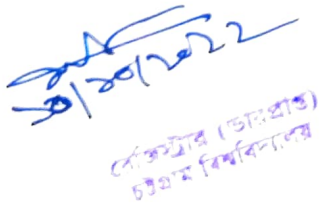 ২০/১০/২০২২
রেজিস্ট্রার (ভারপ্রাপ্ত)
চট্টগ্রাম বিশ্ববিদ্যালয়